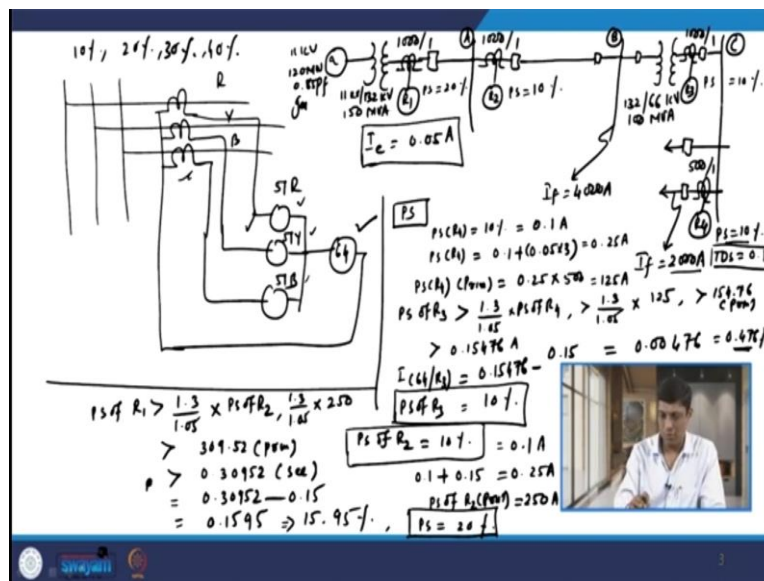 10%, 20%, 30%, 40%
R
Y
B
57R
57Y
57B
64
11kV
120MW
0.85pf
11kV/132kV
150 MVA
1000/1
R1
PS=20%
A
1000/1
R2
PS=10%
B
132/66kV
100 MVA
1000/1
R3
C
PS=10%
500/1
R4
PS=10%
TDS=0.1
Ie = 0.05A
If=4000A
If=2000A
PS
PS(R4) = 10% = 0.1A
PS(R4) = 0.1+(0.05x3)=0.25A
PS(R4)(Prim) = 0.25 x 500 =125A
PS of R3 > 1.3/1.05 x PS of R4, > 1.3/1.05 x 125, > 154.76 (Prim)
> 0.15476 A
I(64/R3) = 0.15476 - 0.15 = 0.00476 = 0.476%
PS of R3 = 10%
PS of R2 = 10% = 0.1A
0.1+0.15 = 0.25A
PS of R2(Prim) =250A
PS of R1 > 1.3/1.05 x PS of R2, 1.3/1.05 x 250
> 309.52 (Prim)
> 0.30952 (Sec)
= 0.30952 - 0.15
= 0.1595 => 15.95%,
PS = 20%
swayam
3